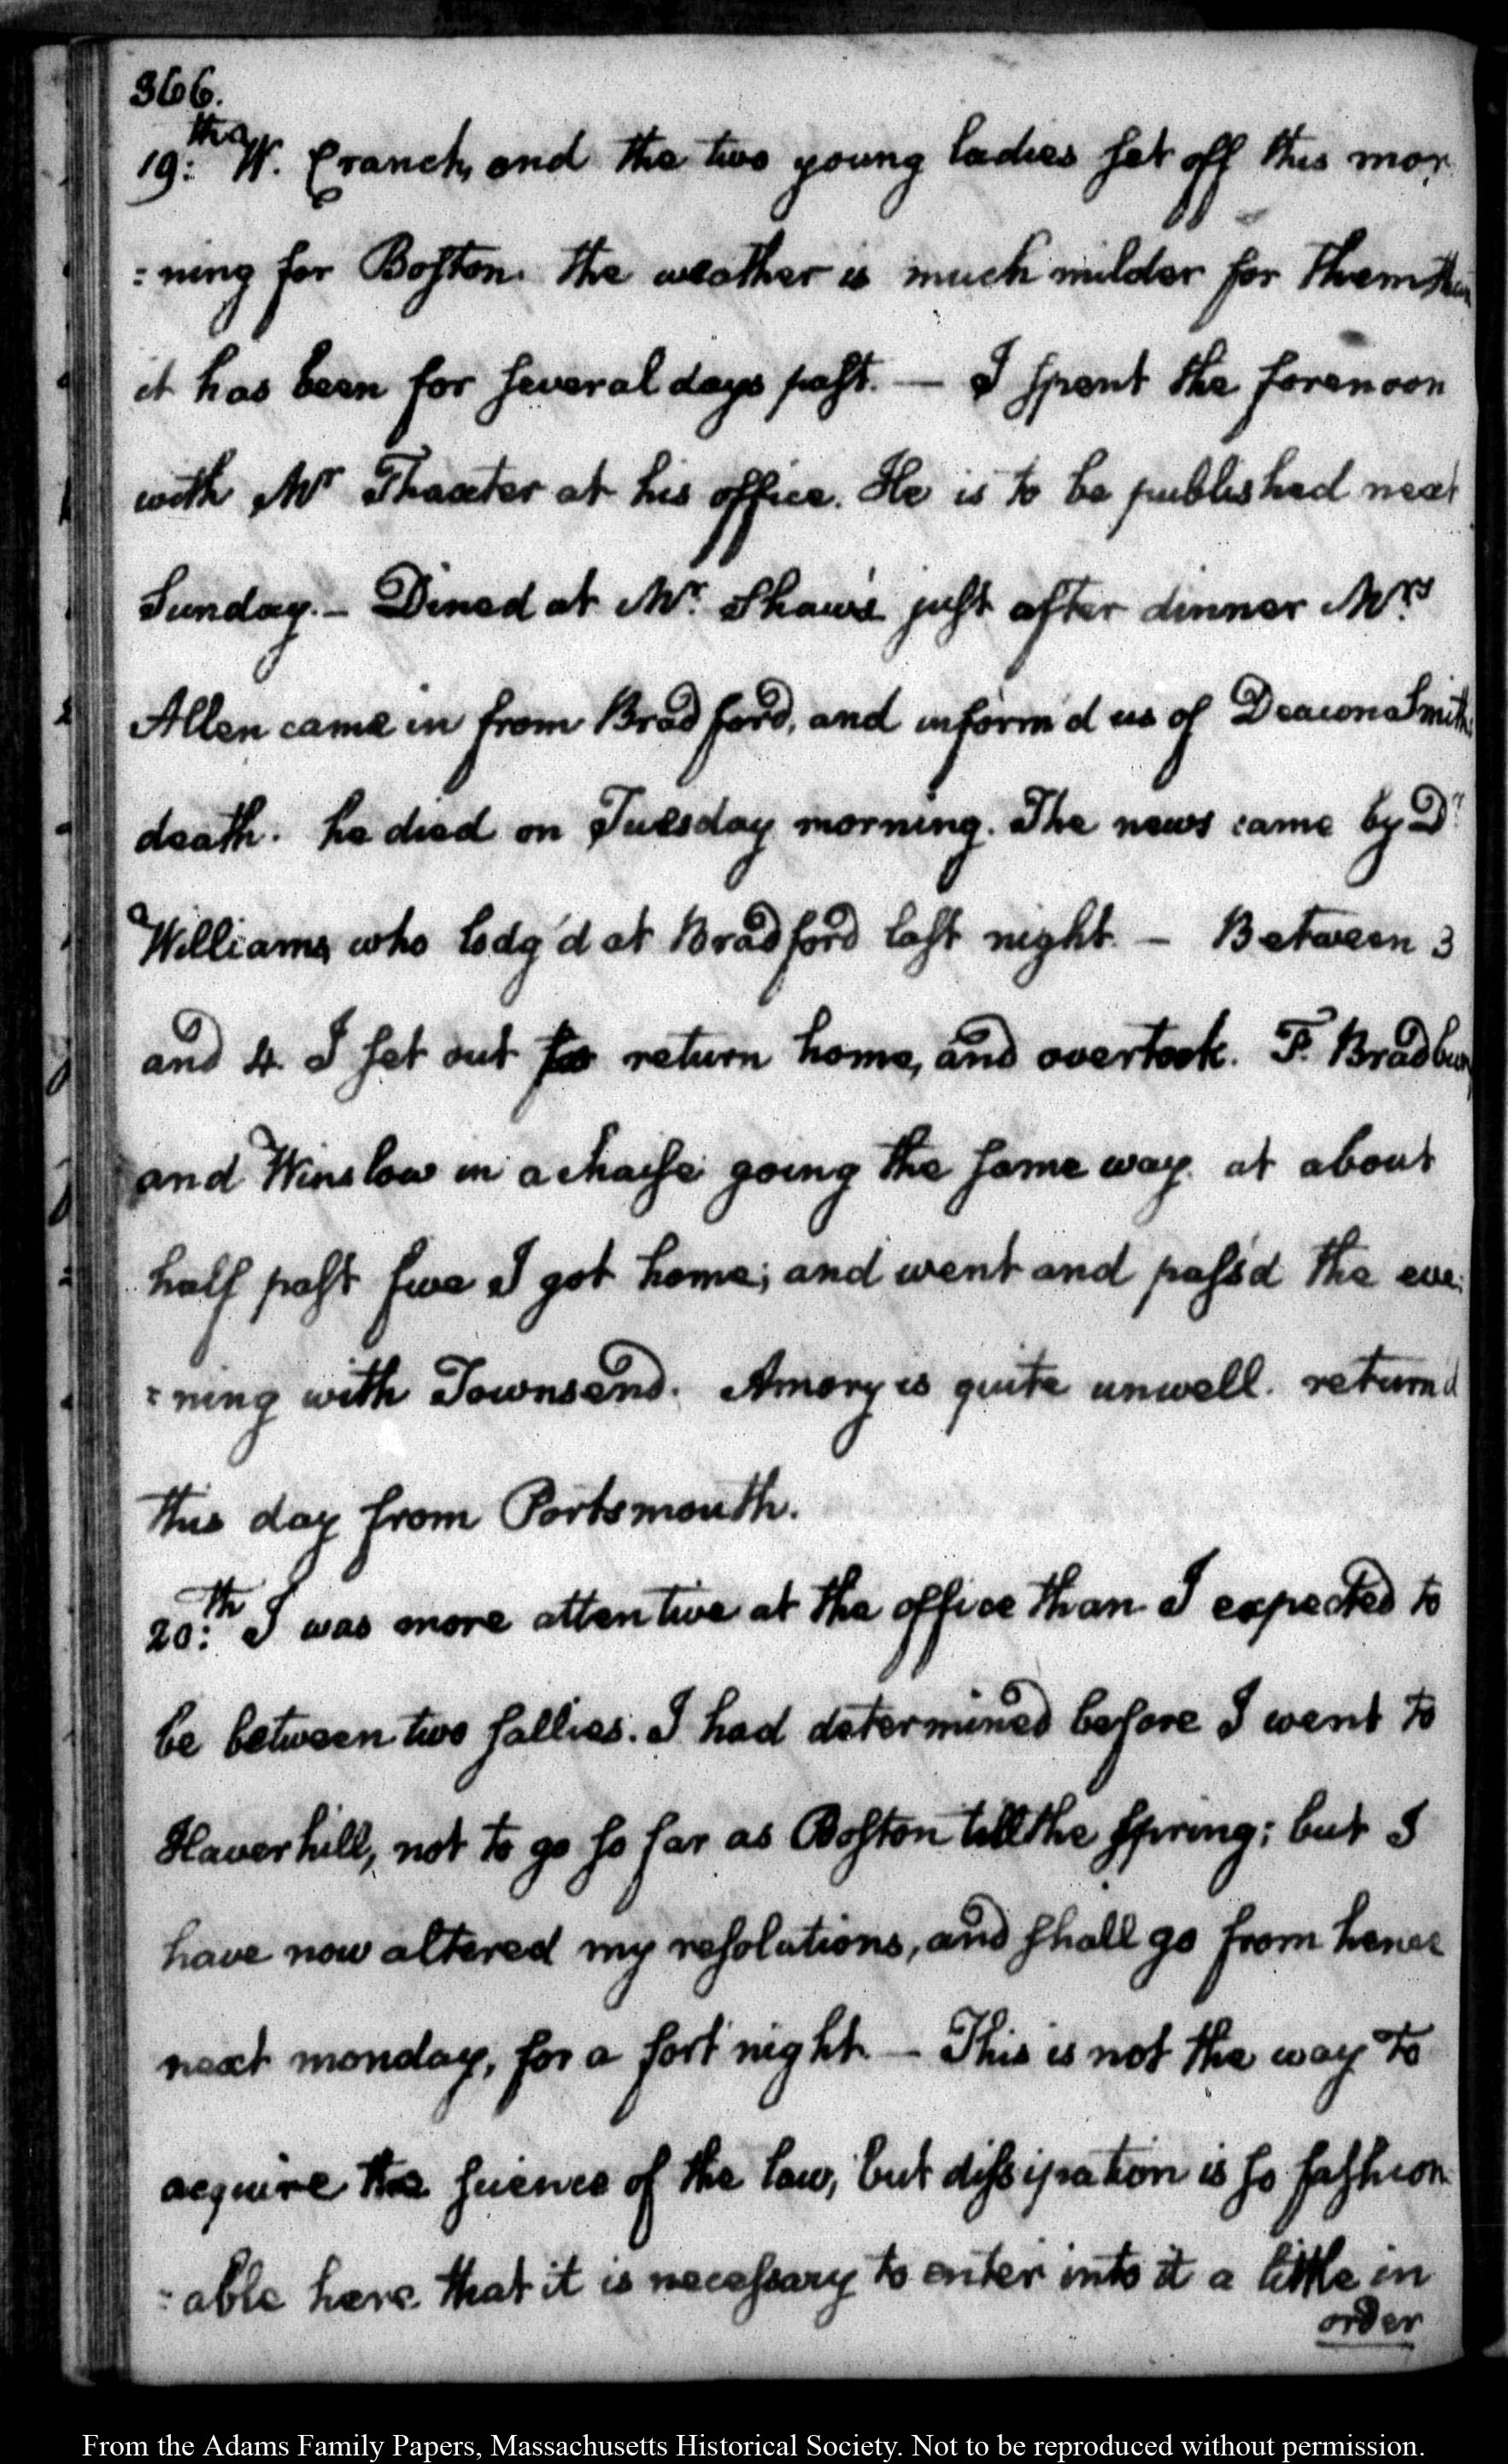 366.
19:th W. Cranch, and the two young ladies set off this mor
:ning for Boston. the weather is much milder for them than
it has been for several days past. — I spent the forenoon
with Mr Thaxter at his office. He is to be published next
Sunday. — Dined at Mr. Shaw's just after dinner Mrs.
Allen came in from Bradford, and inform'd us of Deacon Smith's
death. he died on Tuesday morning. The news came by Dr.
Williams, who lodg'd at Bradford last night. — Between 3
and 4. I set out to return home, and overtook. F. Bradbury
and Winslow in a chaise going the same way. at about
half past five I got home; and went and pass'd the eve:
:ning with Townsend. Amory is quite unwell. return'd
this day from Portsmouth.
20:th I was more attentive at the office than I expected to
be between two sallies. I had determined before I went to
Haverhill, not to go so far as Boston till the spring: but I
have now altered my resolutions, and shall go from hence
next monday, for a fortnight. — This is not the way to
acquire the science of the law, but dissipation is so fashion
:able here that it is necessary to enter into it a little in
order
From the Adams Family Papers, Massachusetts Historical Society. Not to be reproduced without permission.